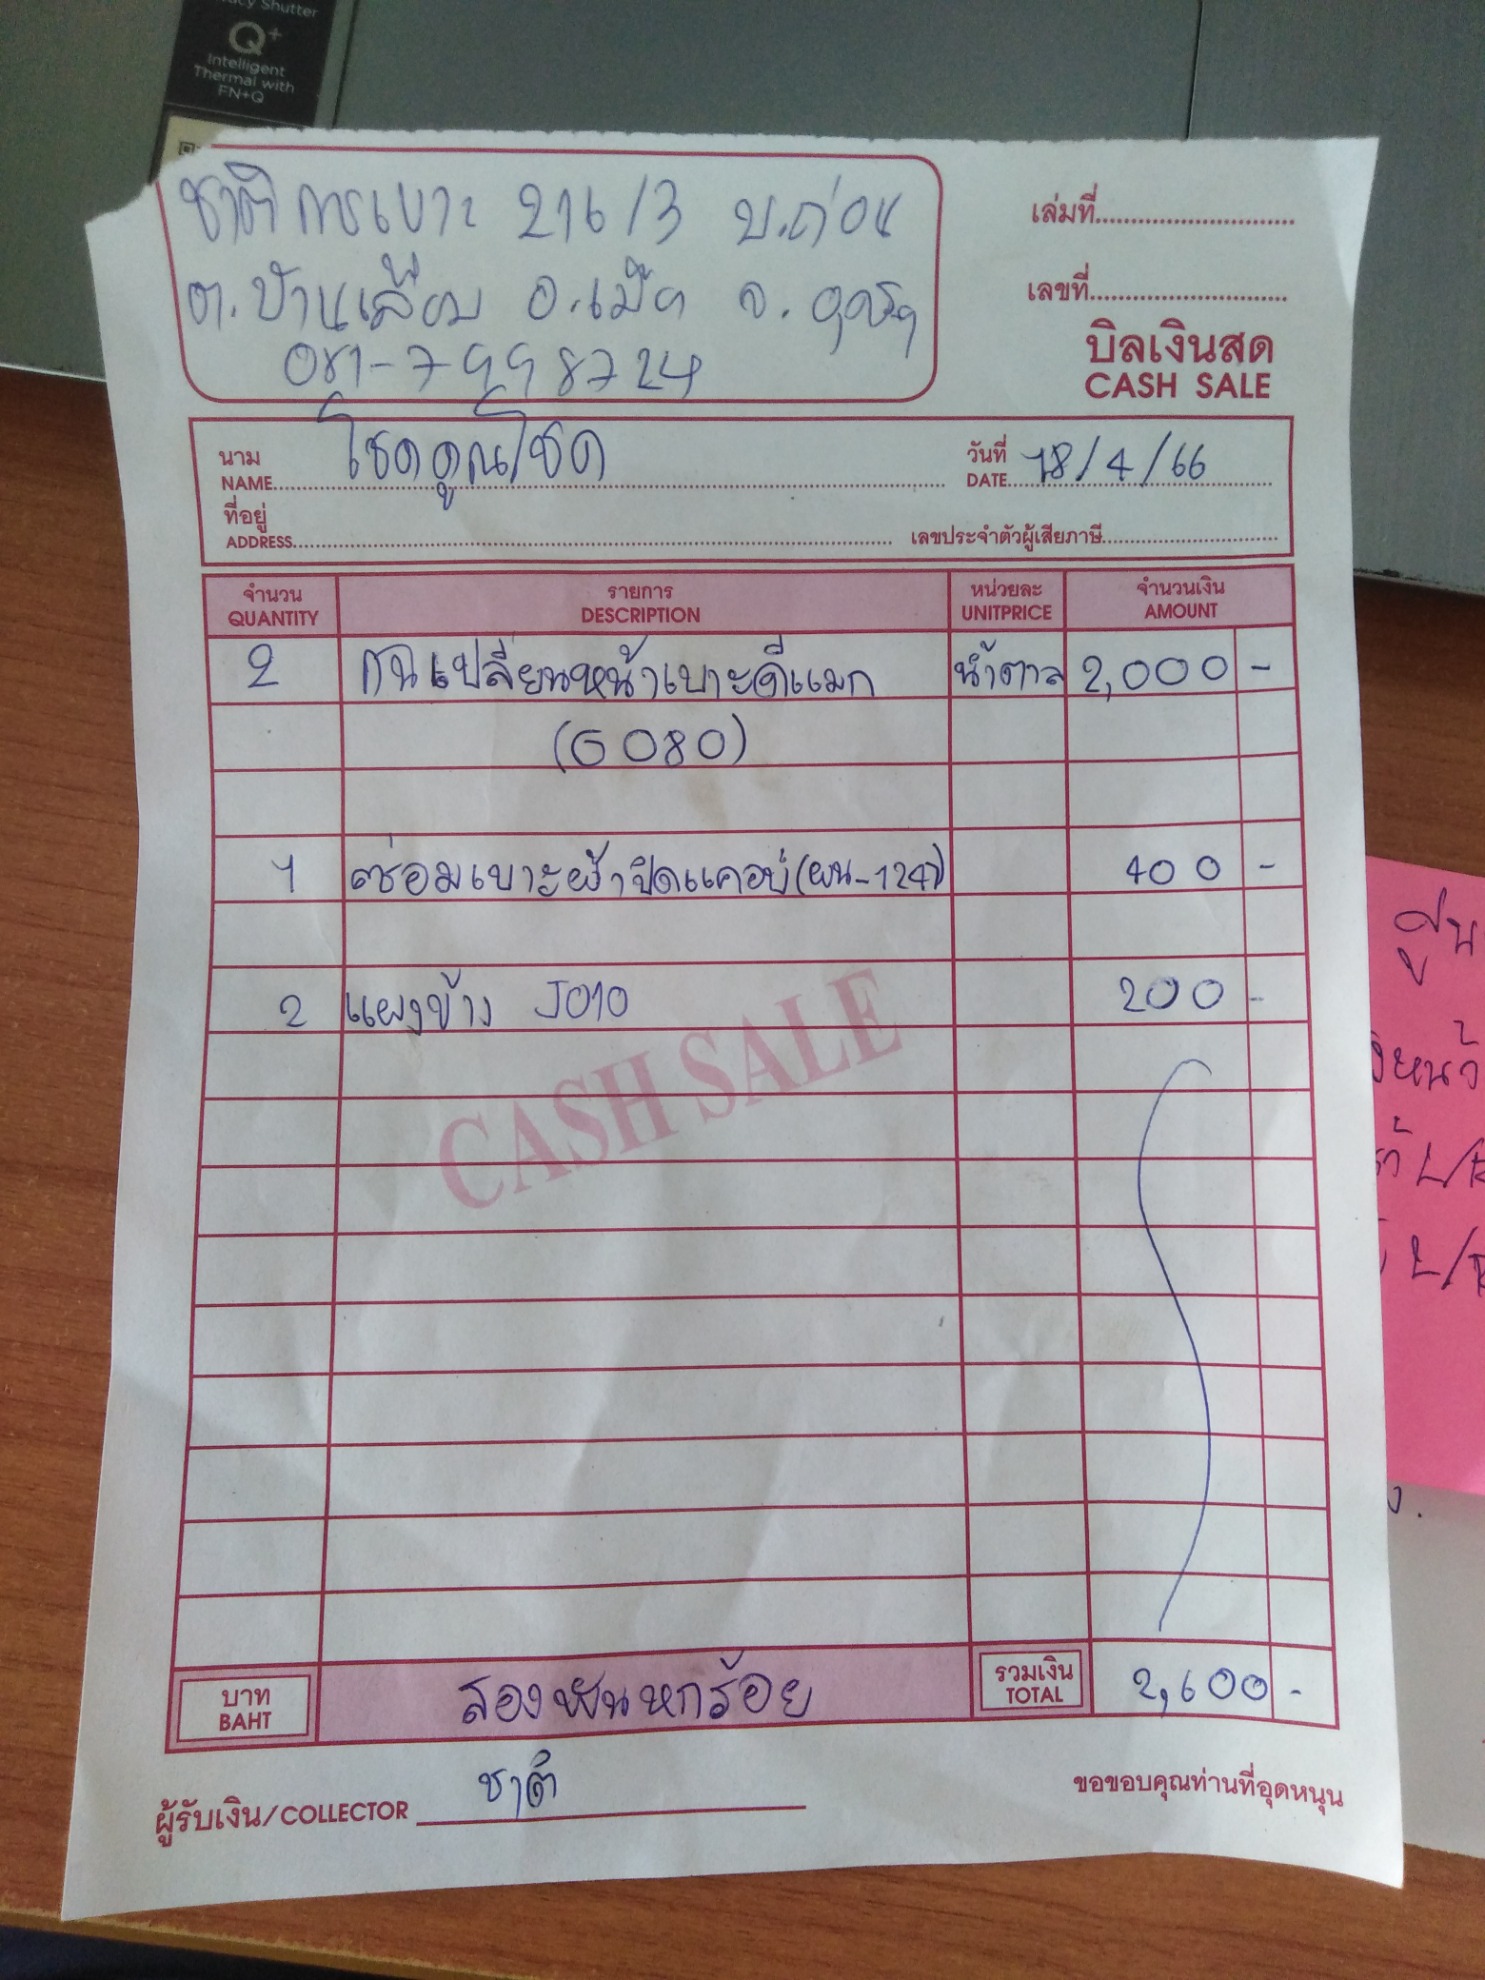 cy Shutter
Q+
Intelligent
Thermal with
FN+Q
ชาติการเบาะ 216/3 บ.ถ่อน
ต.บ้านเลื่อม อ.เมือง จ.อุดรฯ
081-7998724
เล่มที่
เลขที่
บิลเงินสด
CASH SALE
นาม
NAME โชคคูณโชค
วันที่
DATE 18/4/66
ที่อยู่
ADDRESS
เลขประจำตัวผู้เสียภาษี
จำนวน QUANTITY รายการ DESCRIPTION หน่วยละ UNITPRICE จำนวนเงิน AMOUNT
2 เปลี่ยนหน้าเบาะดีแมก น้ำตาล 2,000 -
(G080)
1 ซ่อมเบาะผ้าปิดแคอบ (ผน-124) 400 -
2 แผงข้าง J010 200 -
CASH SALE
บาท BAHT สองพันหกร้อย รวมเงิน TOTAL 2,600 -
ผู้รับเงิน/COLLECTOR ชาติ
ขอขอบคุณท่านที่อุดหนุน
L/R
L/R